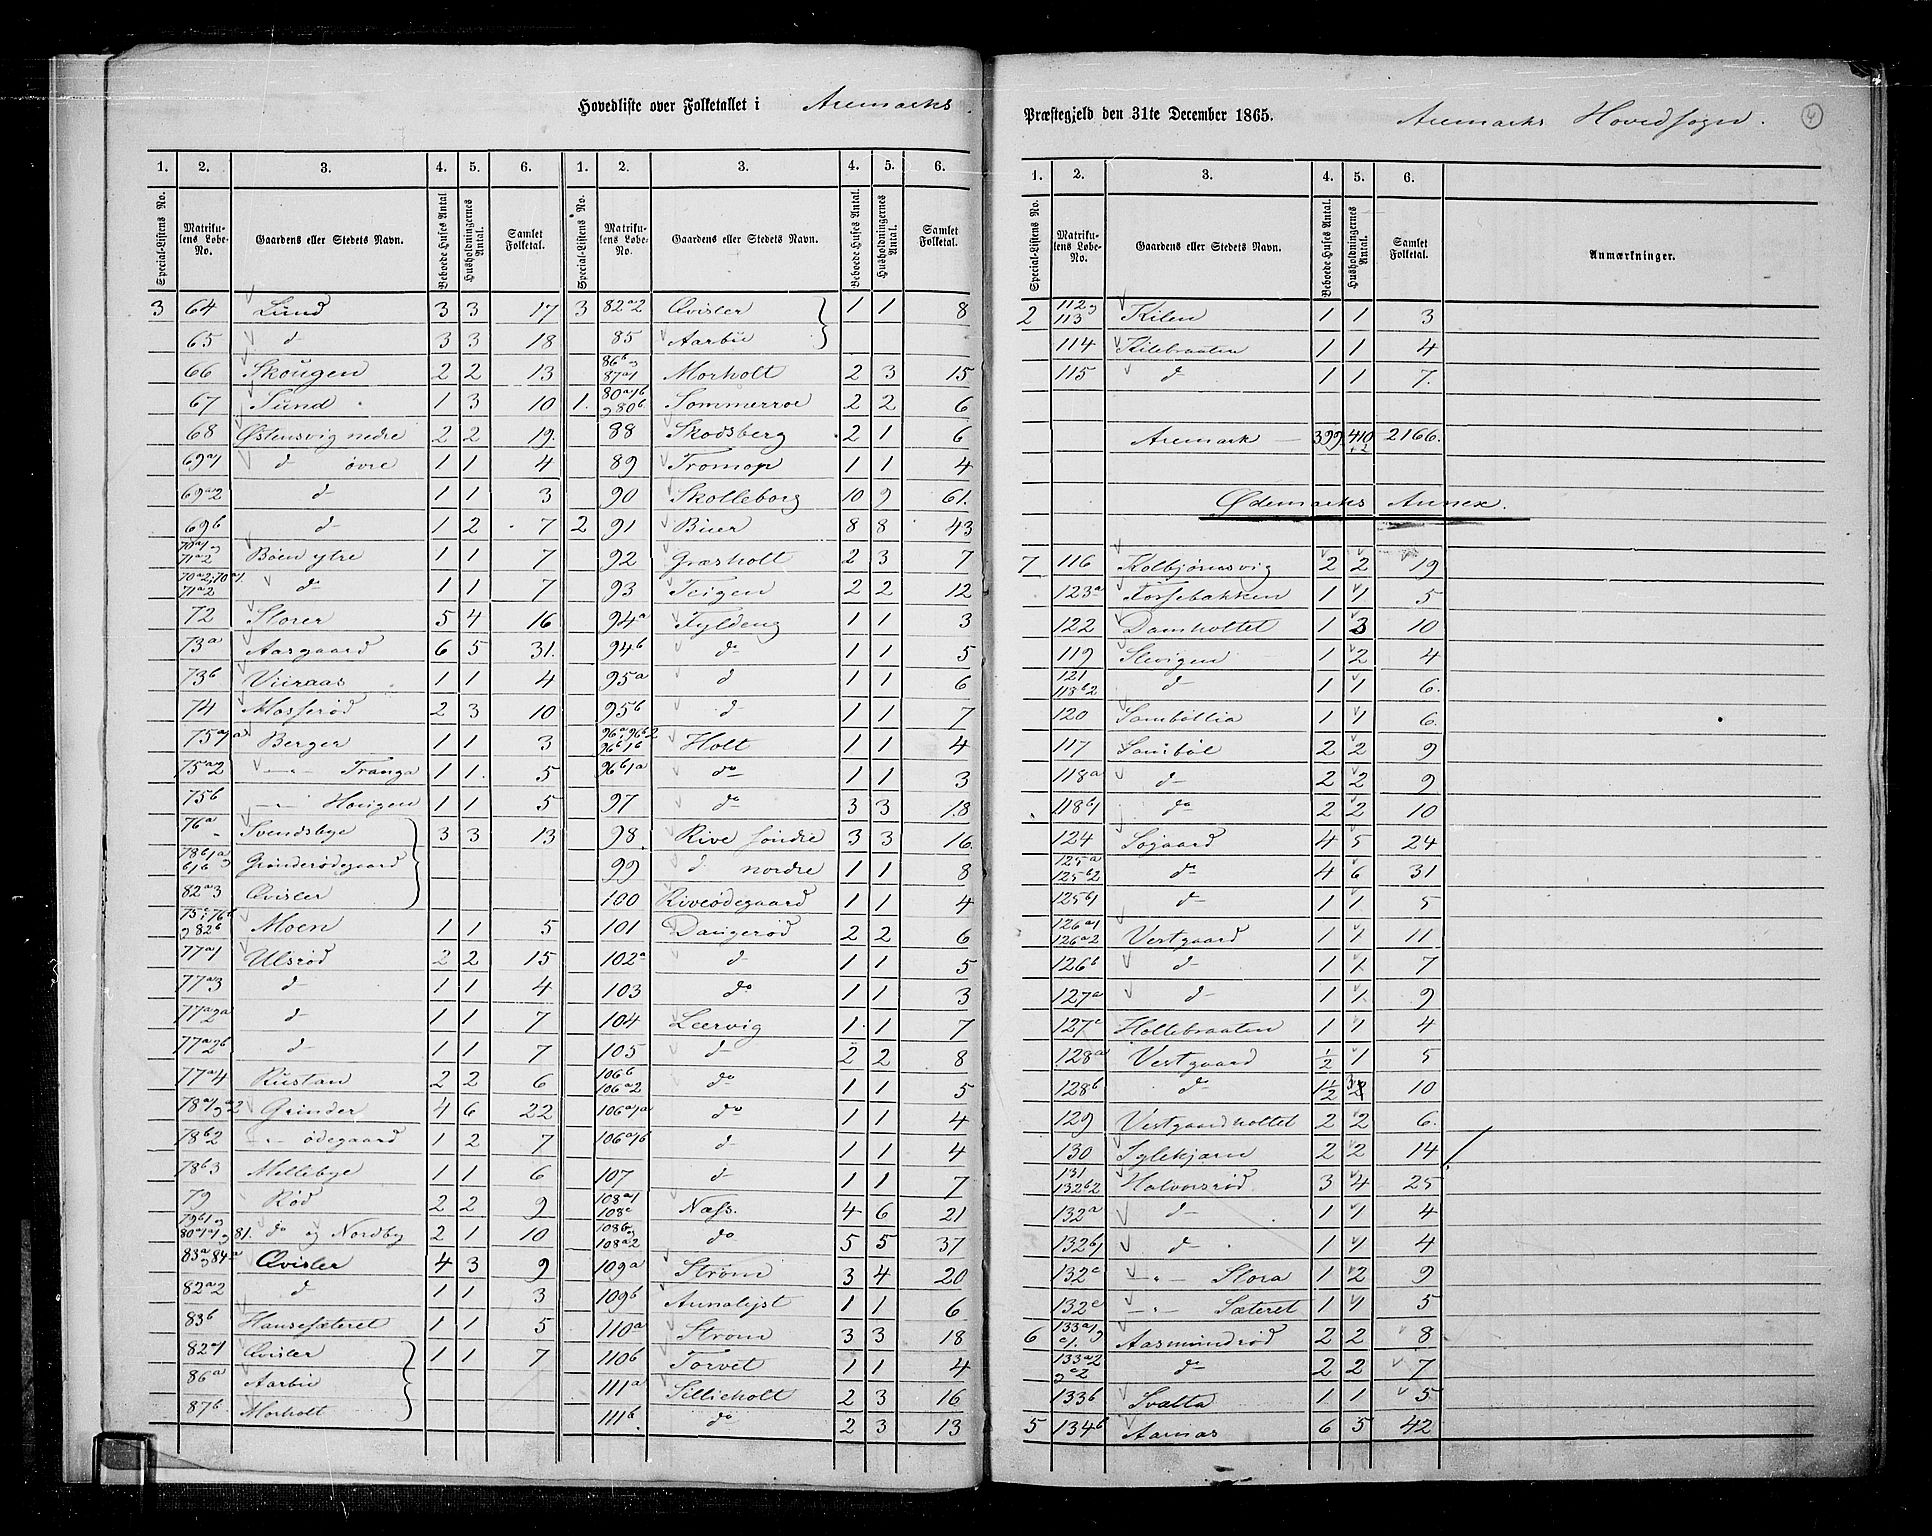 Hovedliste over Folketallet i Aremarks
Præstegjeld den 31te December 1865. Aremarks Hovedsogn. 4
1. 2. 3. 4. 5. 6. 1. 2. 3. 4. 5. 6.
Special-Listens No. Matrikulens Løbe-No. Gaardens eller Stedets Navn. Beboede Huses Antal Husholdningernes Antal. Samlet Folketal. Special-Listens No. Matrikulens Løbe-No. Gaardens eller Stedets Navn. Beboede Huses Antal. Husholdningernes Antal. Samlet Folketal.
3 64 Lund 3 3 17
65 d 3 3 18
66 Skougen 2 2 13
67 Sund 1 3 10
68 Østensvig nedre 2 2 19.
69a1 d øvre 1 1 4
69a2 d 1 1 3
69b d 1 2 7
70a1 og 71a2 Bøen ytre 1 1 7
70a2; 70a1 71a2 d 1 1 7
72 Storer 5 4 16
73a Aasgaard 6 5 31.
73b Viiraas 1 1 4
74 Mosserød 2 3 10
75a1a Berger 1 1 3
75a2 —"— Tranga 1 1. 5
75b —"— Haugen 1 1 5
76a Svendsbye 3 3 13
78b1a og b1b Grinderødegaard
82a3 Qvisler
75c; 76b og 82b Moen 1 1 5
77a1 Ulsrød 2 2 15
77a3 d 1 1 4
77a2a d 1 1 7
77a2b d 1 1 7
77a4 Rustan 2 2 6
78a1 og a2 Grinder 4 6 22
78b2 —"— ødegaard 1 2 7
78b3 Mellebye 1 1 6
79 Rød 2 2 9
79b1 og 80a1a1 og 81. do og Nordby 2 1 10
83a og 84a Qvisler 4 3 9
82a2 d 1 1 3
83b Hansesæteret 1 1 5
82a1 Qvisler 1 1 7
86a Aarbu
87b Morholt
3 82a2 Qvisler 1 1 8
85 Aarbu
86b og 87a1 Morholt 2 3 15
1. 80a1b og 80b Sommerroe 2 2 6
88 Skodsberg 2 1 6
89 Tromop 1 1 4
90 Skolleborg 10 9 61.
2 91 Buer 8 8 43
92 Græsholt 2 3 7
93 Teigen 2 2 12
94a Fyldeng 1 1 3
94b do 1 1 5
95a d 1 1 6
95b d 1 1 7
96a; 96b2 96b1b Holt 1 1 4
96b1a do 1 1 3
97 do 3 3 18
98. Rive søndre 3 3 16
99 d nordre 1 1 8
100 Riveødegaard 1 1 4
101 Dangerød 2 2 6
102a d 1 1 5
103 do 1 1 3
104 Leervig 1 1 7
105 d 2 2 8
106b 106a2 do 1 1 5
106a1a do 1 1 4
106a1b d 1 1 4
107 d 1 1 7
108a1 108c Næss. 4 6 21
108b og 108a2 do 5 5 37
109a Strøm 3 4 20
109b Annalyst 1 1 6
110a Strøm 3 3 18
110b Torvet 1 1 4
111a Sillieholt 2 3 16
111b do 2 3 13
1. 2. 3. 4. 5. 6.
Special-Listens No. Matrikulens Løbe-No. Gaardens eller Stedets Navn. Beboede Huses Antal. Husholdningernes Antal. Samlet Folketal. Anmærkninger.
2 112 og 113 Kilen 1 1 3
114 Kilebraaten 1 1 4
115 d 1 1 7.
Aremark — 399 410 +2 2166.
Ødemarks Annex.
7 116 Kolbjørnsvig 2 2 19
123a Fossebakken 1 1 5
122 Damholtet 1 3 10
119 Slevigen 1 2 4
121 118b2 d 1 1 6.
120 Sambøllia 1 1 6.
117 Sambøl 2 2 9
118a d 2 2 9
118b1 do 2 2 10
124 Søgaard 4 5 24
125a 125b2 do 4 6 31
125b1 d 1 1 5
126a1 126a2 Vestgaard 1 1 11
126b d 1 1 7
127a d 1 1. 9
127c Hollebraaten 1 1 4
128a Vestgaard 1/2 1 5
128b do 1 1/2 3 10
129 Vestgaardholtet 2 2 6.
130 Sylekjærn 2 2 14
131 132b2 Halvorsrød 3 4 25
132a d 1 1 4
132b1 d 1 1 4
132c —"— Stora 1 2 9
132e —"— Sæteret 1 1 5
6 133a1 og c1. Aasmundrød 2 2 8
133a2 og c2 do 2 2 7
133b Svalta 1 1 5
5 134b Aarnæs 6 5 42